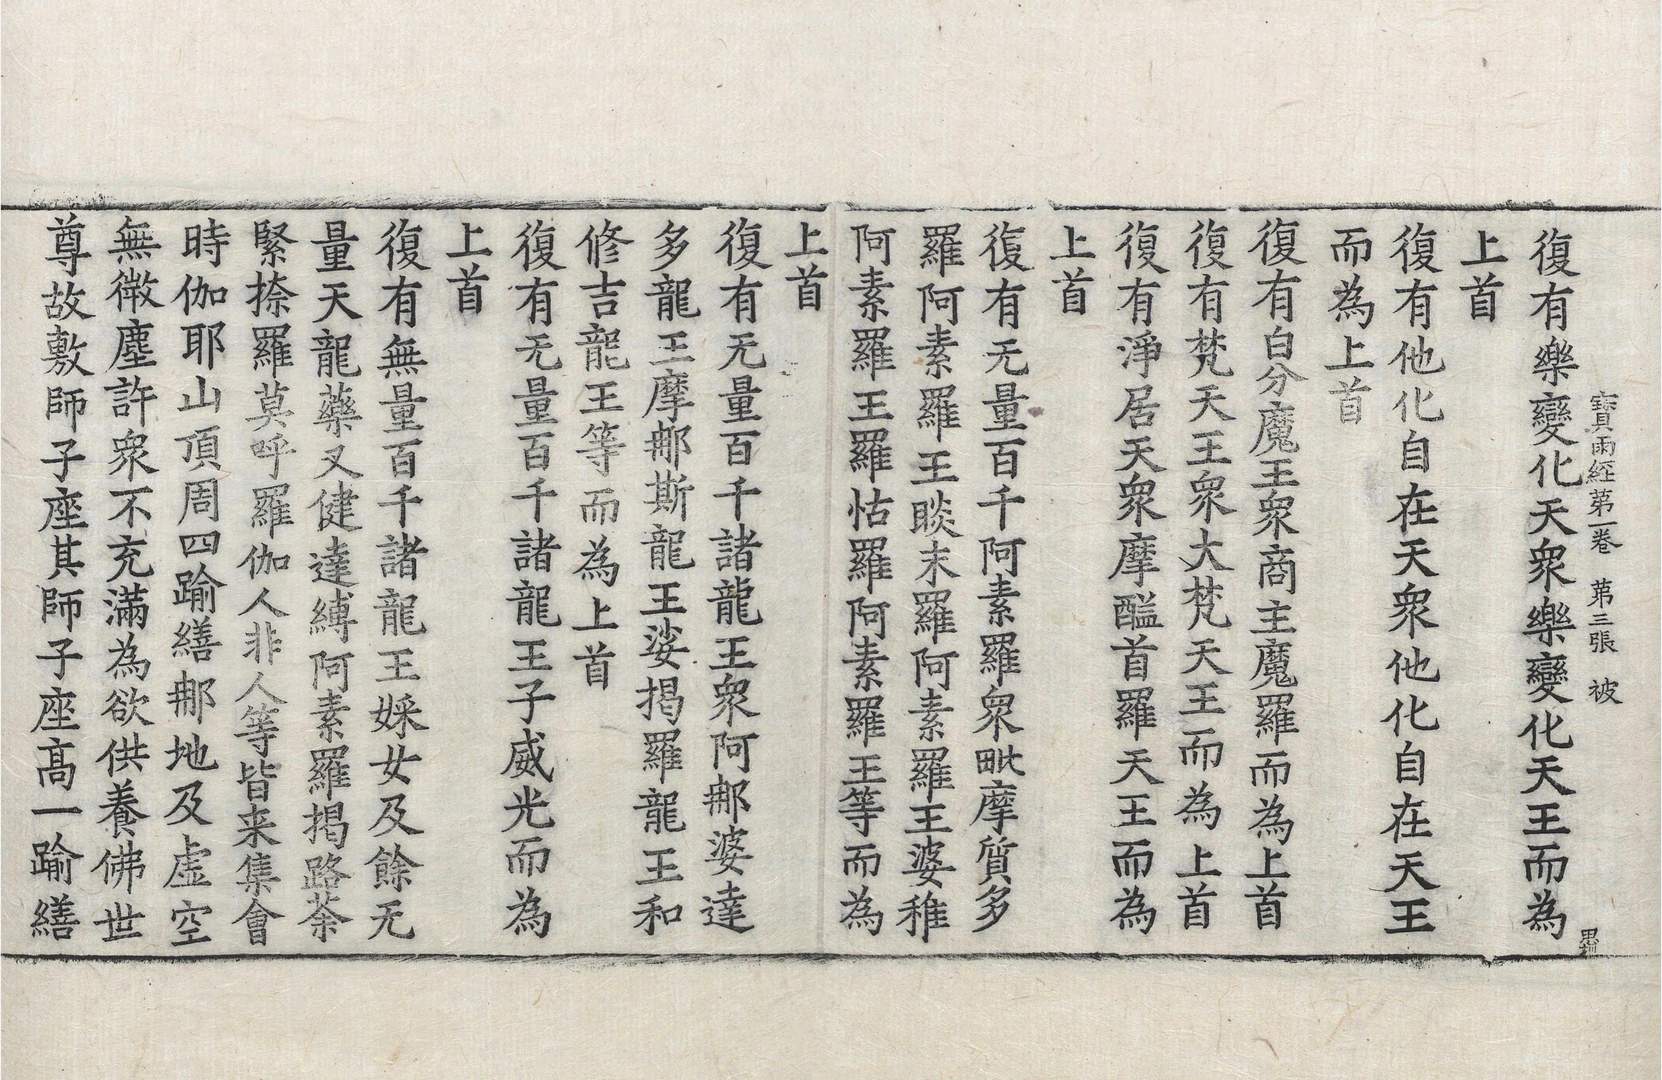 寶雨經第一卷 第三張 被
復有樂變化天衆樂變化天王而為
上首
復有他化自在天衆他化自在天王
而為上首
復有白分魔王衆商主魔羅而為上首
復有梵天王衆大梵天王而為上首
復有淨居天衆摩醯首羅天王而為
上首
復有无量百千阿素羅衆毗摩質多
羅阿素羅王睒末羅阿素羅王婆稚
阿素羅王羅怙羅阿素羅王等而為
上首
復有无量百千諸龍王衆阿那婆達
多龍王摩那斯龍王娑揭羅龍王和
修吉龍王等而為上首
復有无量百千諸龍王子威光而為
上首
復有無量百千諸龍王婇女及餘无
量天龍藥叉健達縛阿素羅揭路荼
緊捺羅莫呼羅伽人非人等皆来集會
時伽耶山頂周四踰繕那地及虛空
無微塵許衆不充滿為欲供養佛世
尊故敷師子座其師子座高一踰繕